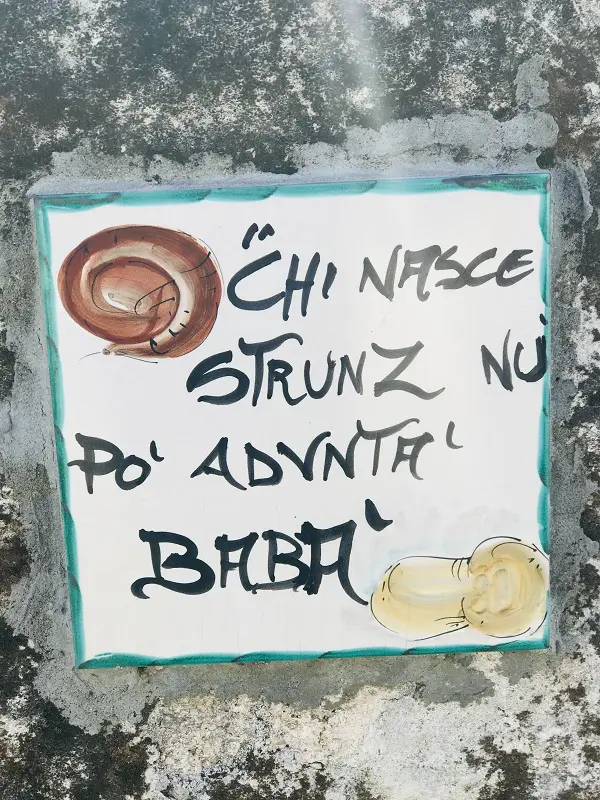 "CHI NASCE
STRUNZ NU'
PO' ADVNTA'
BABA'